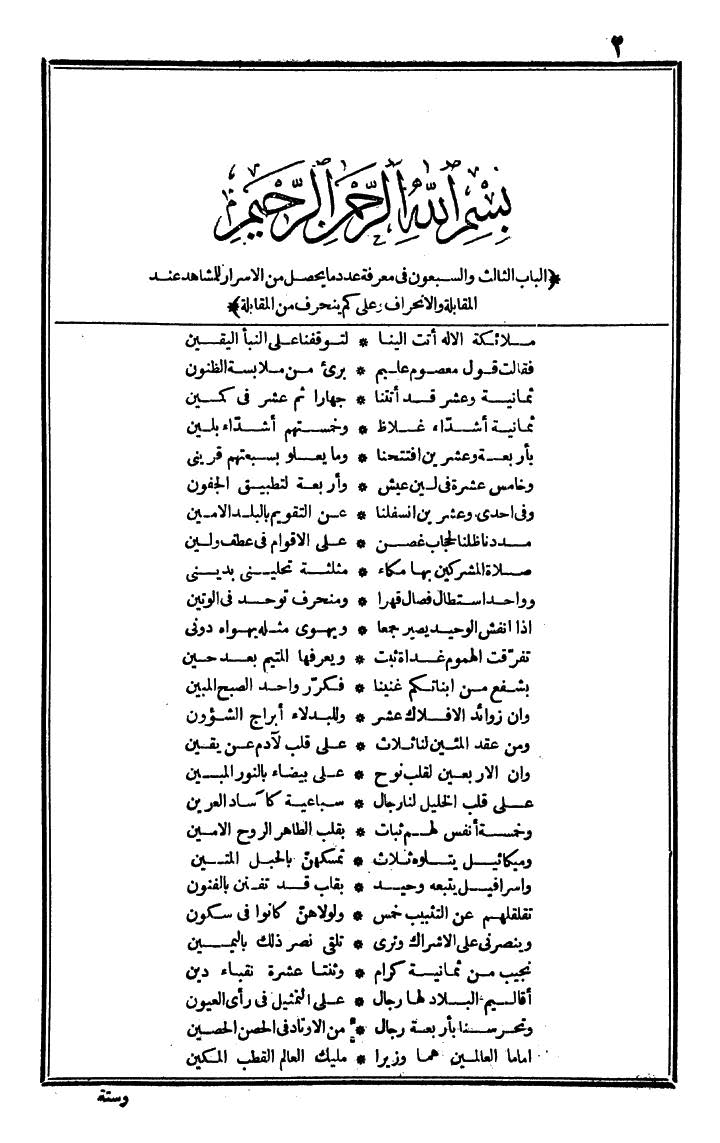 ٢
بسم الله الرحمن الرحيم
﴿الباب الثالث والسبعون فى معرفة عدد ما يحصل من الاسرار للمشاهد عند
المقابلة والانحراف وعلى كم ينحرف من المقابلة﴾
ملائكة الاله أتت الينا * لتوقفنا على النبأ اليقين
فقالت قول معصوم عليم * برئ من ملابسة الظنون
ثمانية وعشر قد أتتنا * جهارا ثم عشر فى كمين
ثمانية أشدّاء غلاظ * وخمستهم أشدّاء بلين
بأربعة وعشرين افتتحنا * وما يعلو بسبعتهم قرينى
وخامس عشرة فى لين عيش * وأربعة لتطبيق الجفون
وفى احدى وعشرين انسفلنا * عن التقويم بالبلد الامين
مددنا ظلنا لحجاب غصن * على الاقوام فى عطف ولين
صلاة المشركين بها مكاء * مثلثة تحلينى بدينى
وواحد استطال فصال قهرا * ومنحرف توحد فى الوتين
اذا انفش الوحيد يصير جمعا * ويهوى مثله يهواه دونى
تفرّقت الهموم غداة ثبت * ويعرفها المتيم بعد حين
بشفع من ابناتكم غنينا * فكرّر واحد الصبح المبين
وان زوائد الافلاك عشر * وللبدلاء أبراج الشؤون
ومن عقد المئين لنا ثلاث * على قلب لآدم عن يقين
وان الاربعين لقلب نوح * على بيضاء بالنور المبين
على قلب الخليل لنا رجال * سباعية كآساد العرين
وخمسة أنفس لهم ثبات * بقلب الطاهر الروح الامين
وميكائيل يتلوه ثلاث * تمسكهنّ بالحبل المتين
واسرافيل يتبعه وحيد * بقلب قد تفنن بالفنون
تقلقلهم عن التثبيب خمس * ولولاهنّ كانوا فى سكون
وينصرنى على الاشراك وترى * تلقى نصر ذلك باليمين
نجيب من ثمانية كرام * وثنتا عشرة نقباء دين
أقاليم البلاد لها رجال * على التمثيل فى رأى العيون
وتحرسنا بأربعة رجال * من الاوتاد فى الحصن الحصين
اماما العالمين هما وزيرا * مليك العالم القطب المكين
وستة